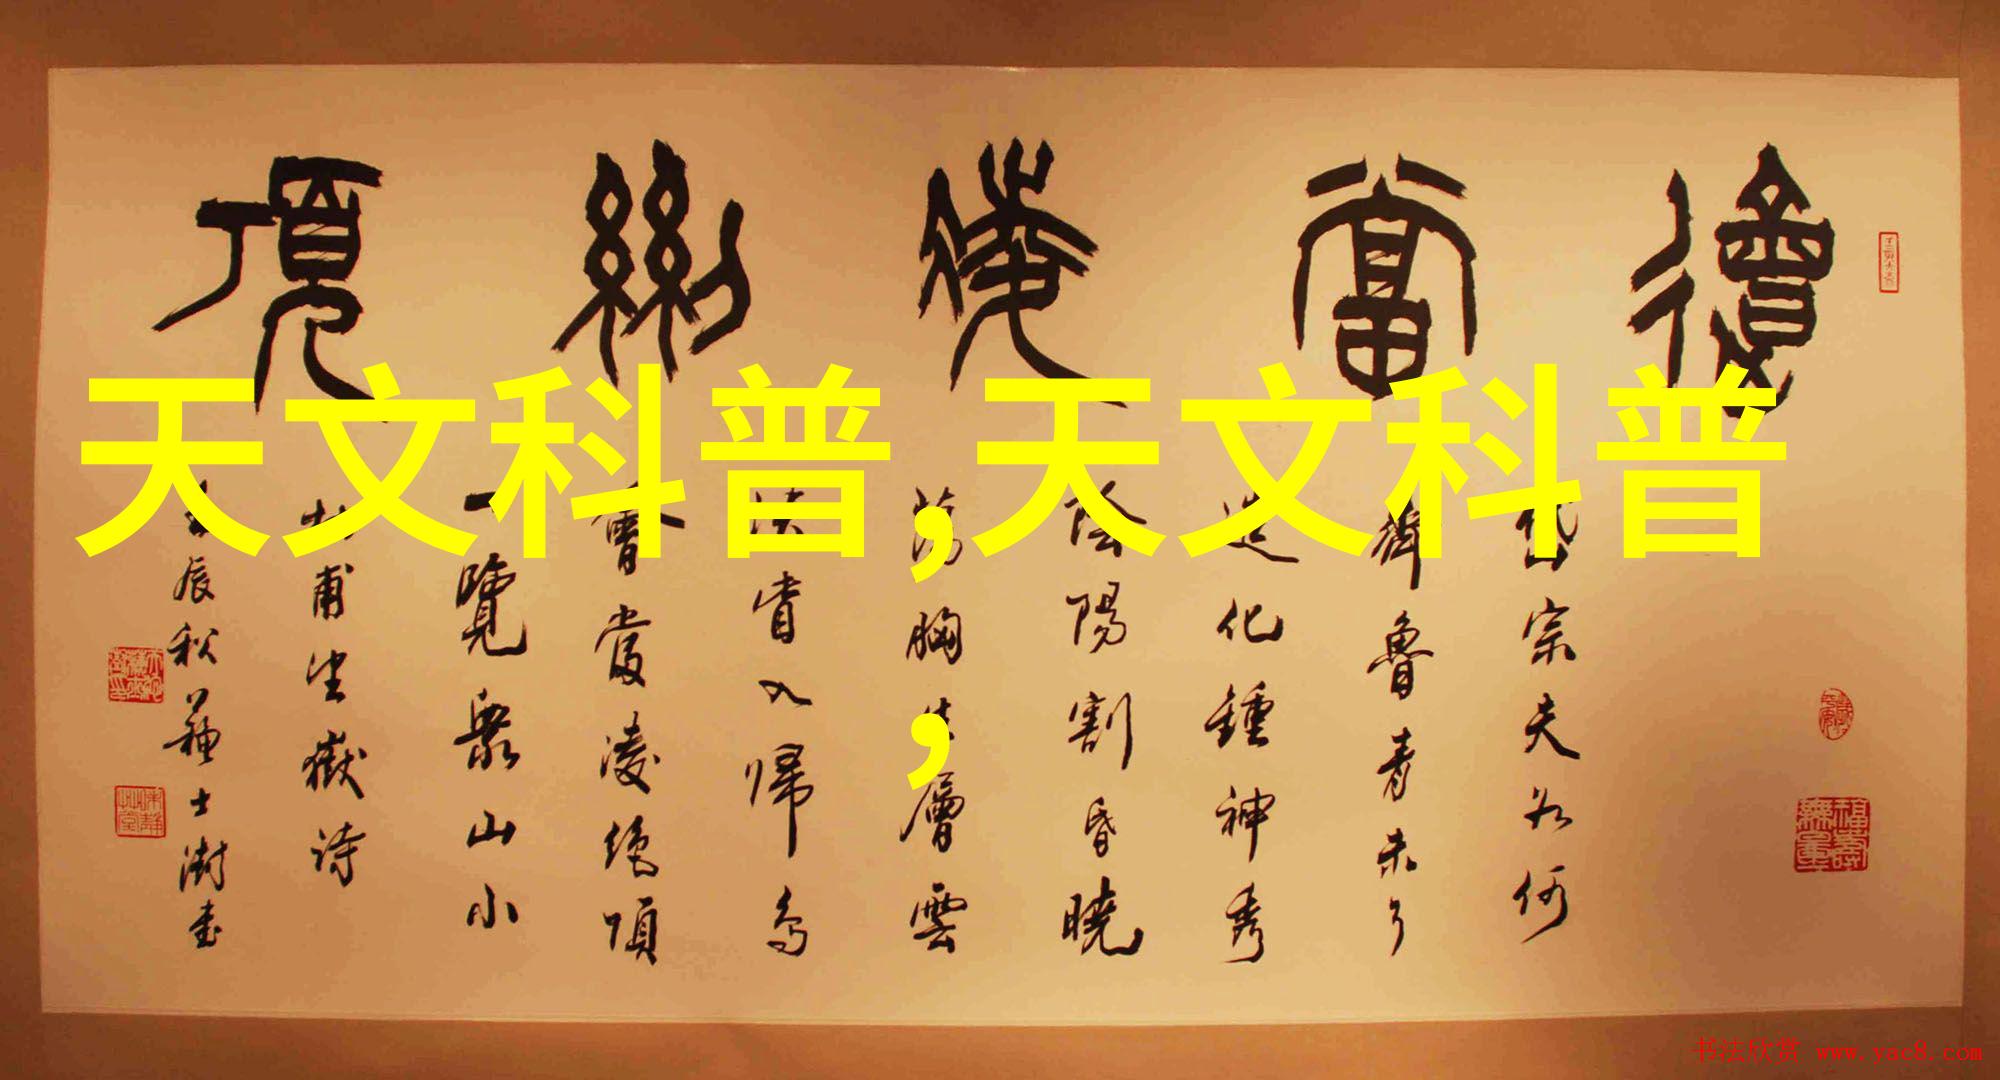 天文科普,天文科普
,
會當凌絕頂
岱宗夫如何
齊魯青未了
造化鍾神秀
陰陽割昏曉
蕩胸生層雲
決眥入歸鳥
會當凌絕頂
一覽眾山小
杜甫望嶽詩
壬辰秋蘇士澍書
福壽無量
书法欣赏 www.yac8.com